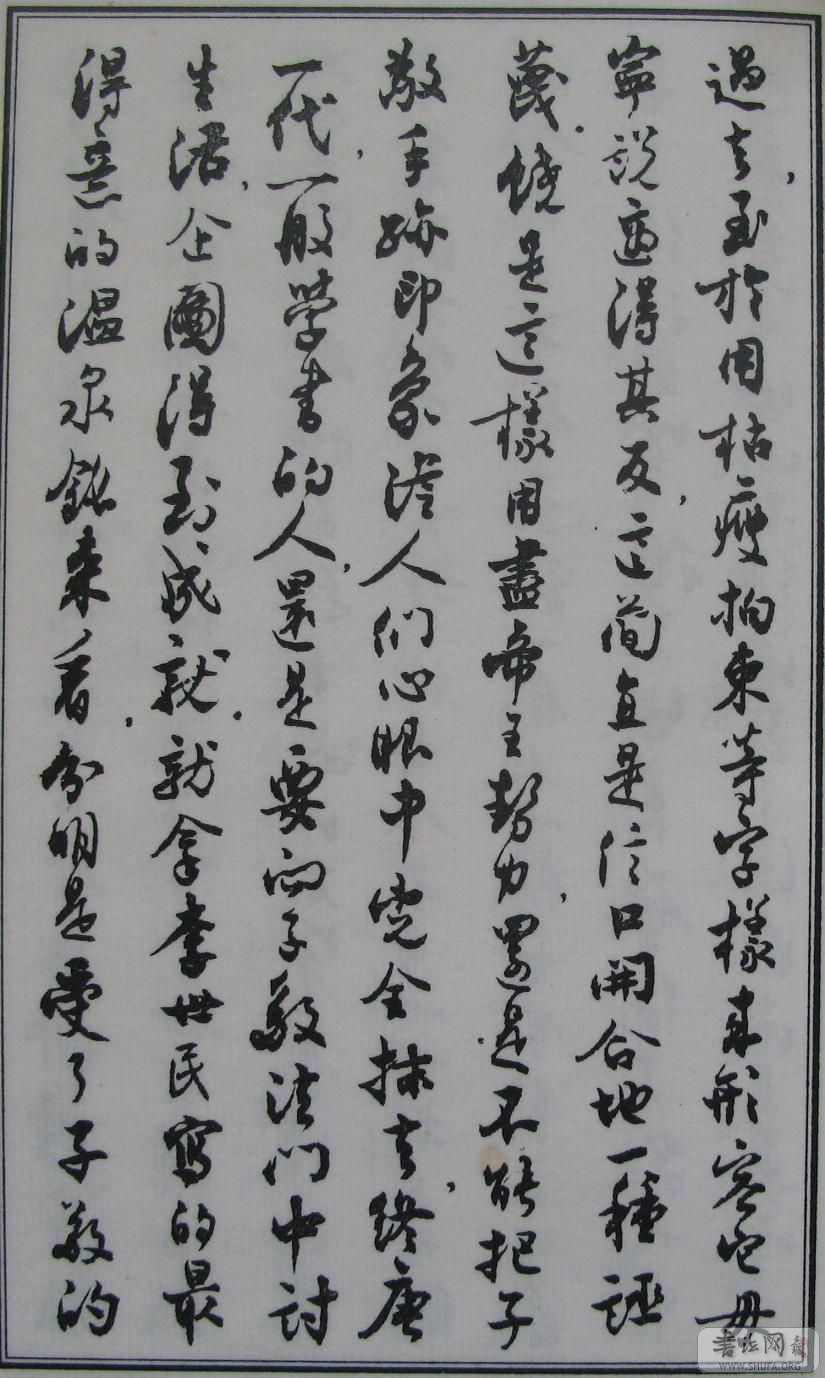 過去，至於用枯瘦拘束等字樣來形容它，毋
寧說適得其反，這簡直是信口開合地一種誣
蔑。饒是這樣用盡帝王勢力，還是不能把子
敬手跡印象從人們心眼中完全抹去，終唐
一代，一般學書的人，還是要向子敬法門中討
生活，企圖得到成就。就拿李世民寫的最
得意的溫泉銘來看，分明是受了子敬的
書法网
WWW.SHUFA.ORG